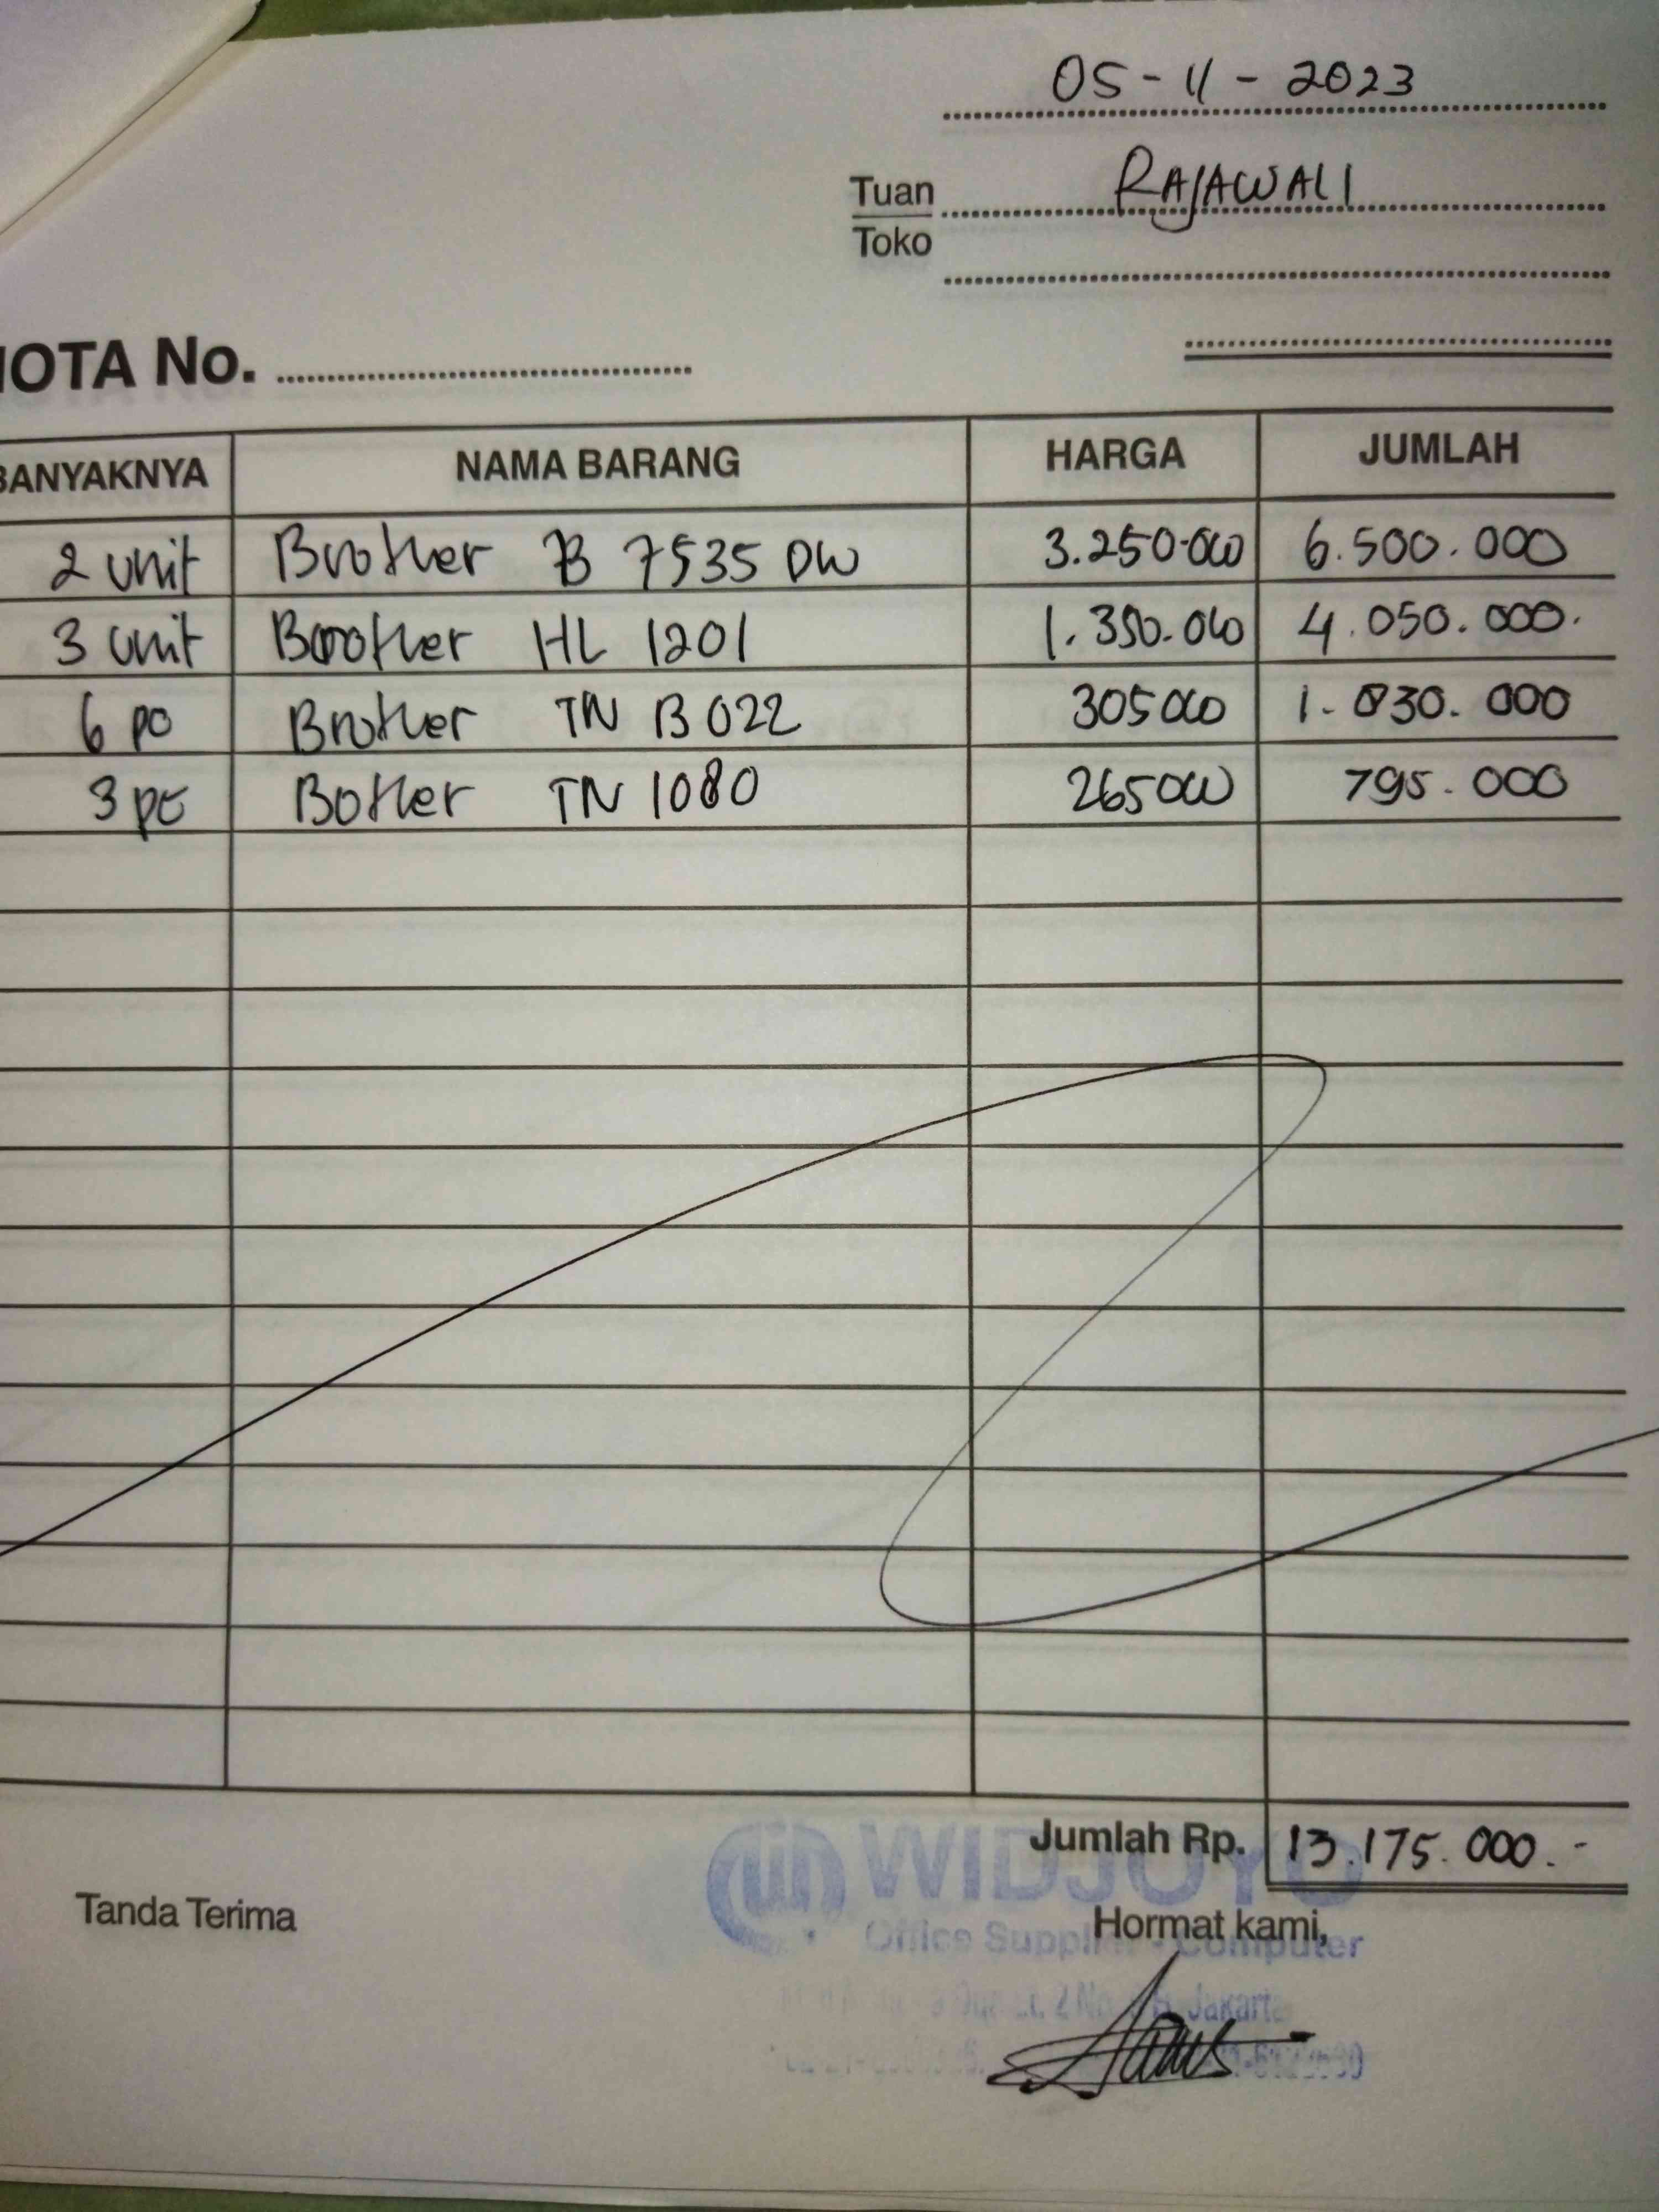 05-11-2023
Tuan RAJAWALI
Toko
NOTA No.
BANYAKNYA NAMA BARANG HARGA JUMLAH
2 unit Brother B 7535 DW 3.250.000 6.500.000
3 unit Brother HL 1201 1.350.000 4.050.000.
6 pc Brother TN B022 305000 1.830.000
3 pc Bother TN 1080 265000 795.000
Jumlah Rp. 13.175.000.-
WIDJOYO
Tanda Terima Hormat kami,
Office Supplier - Computer
Jakarta